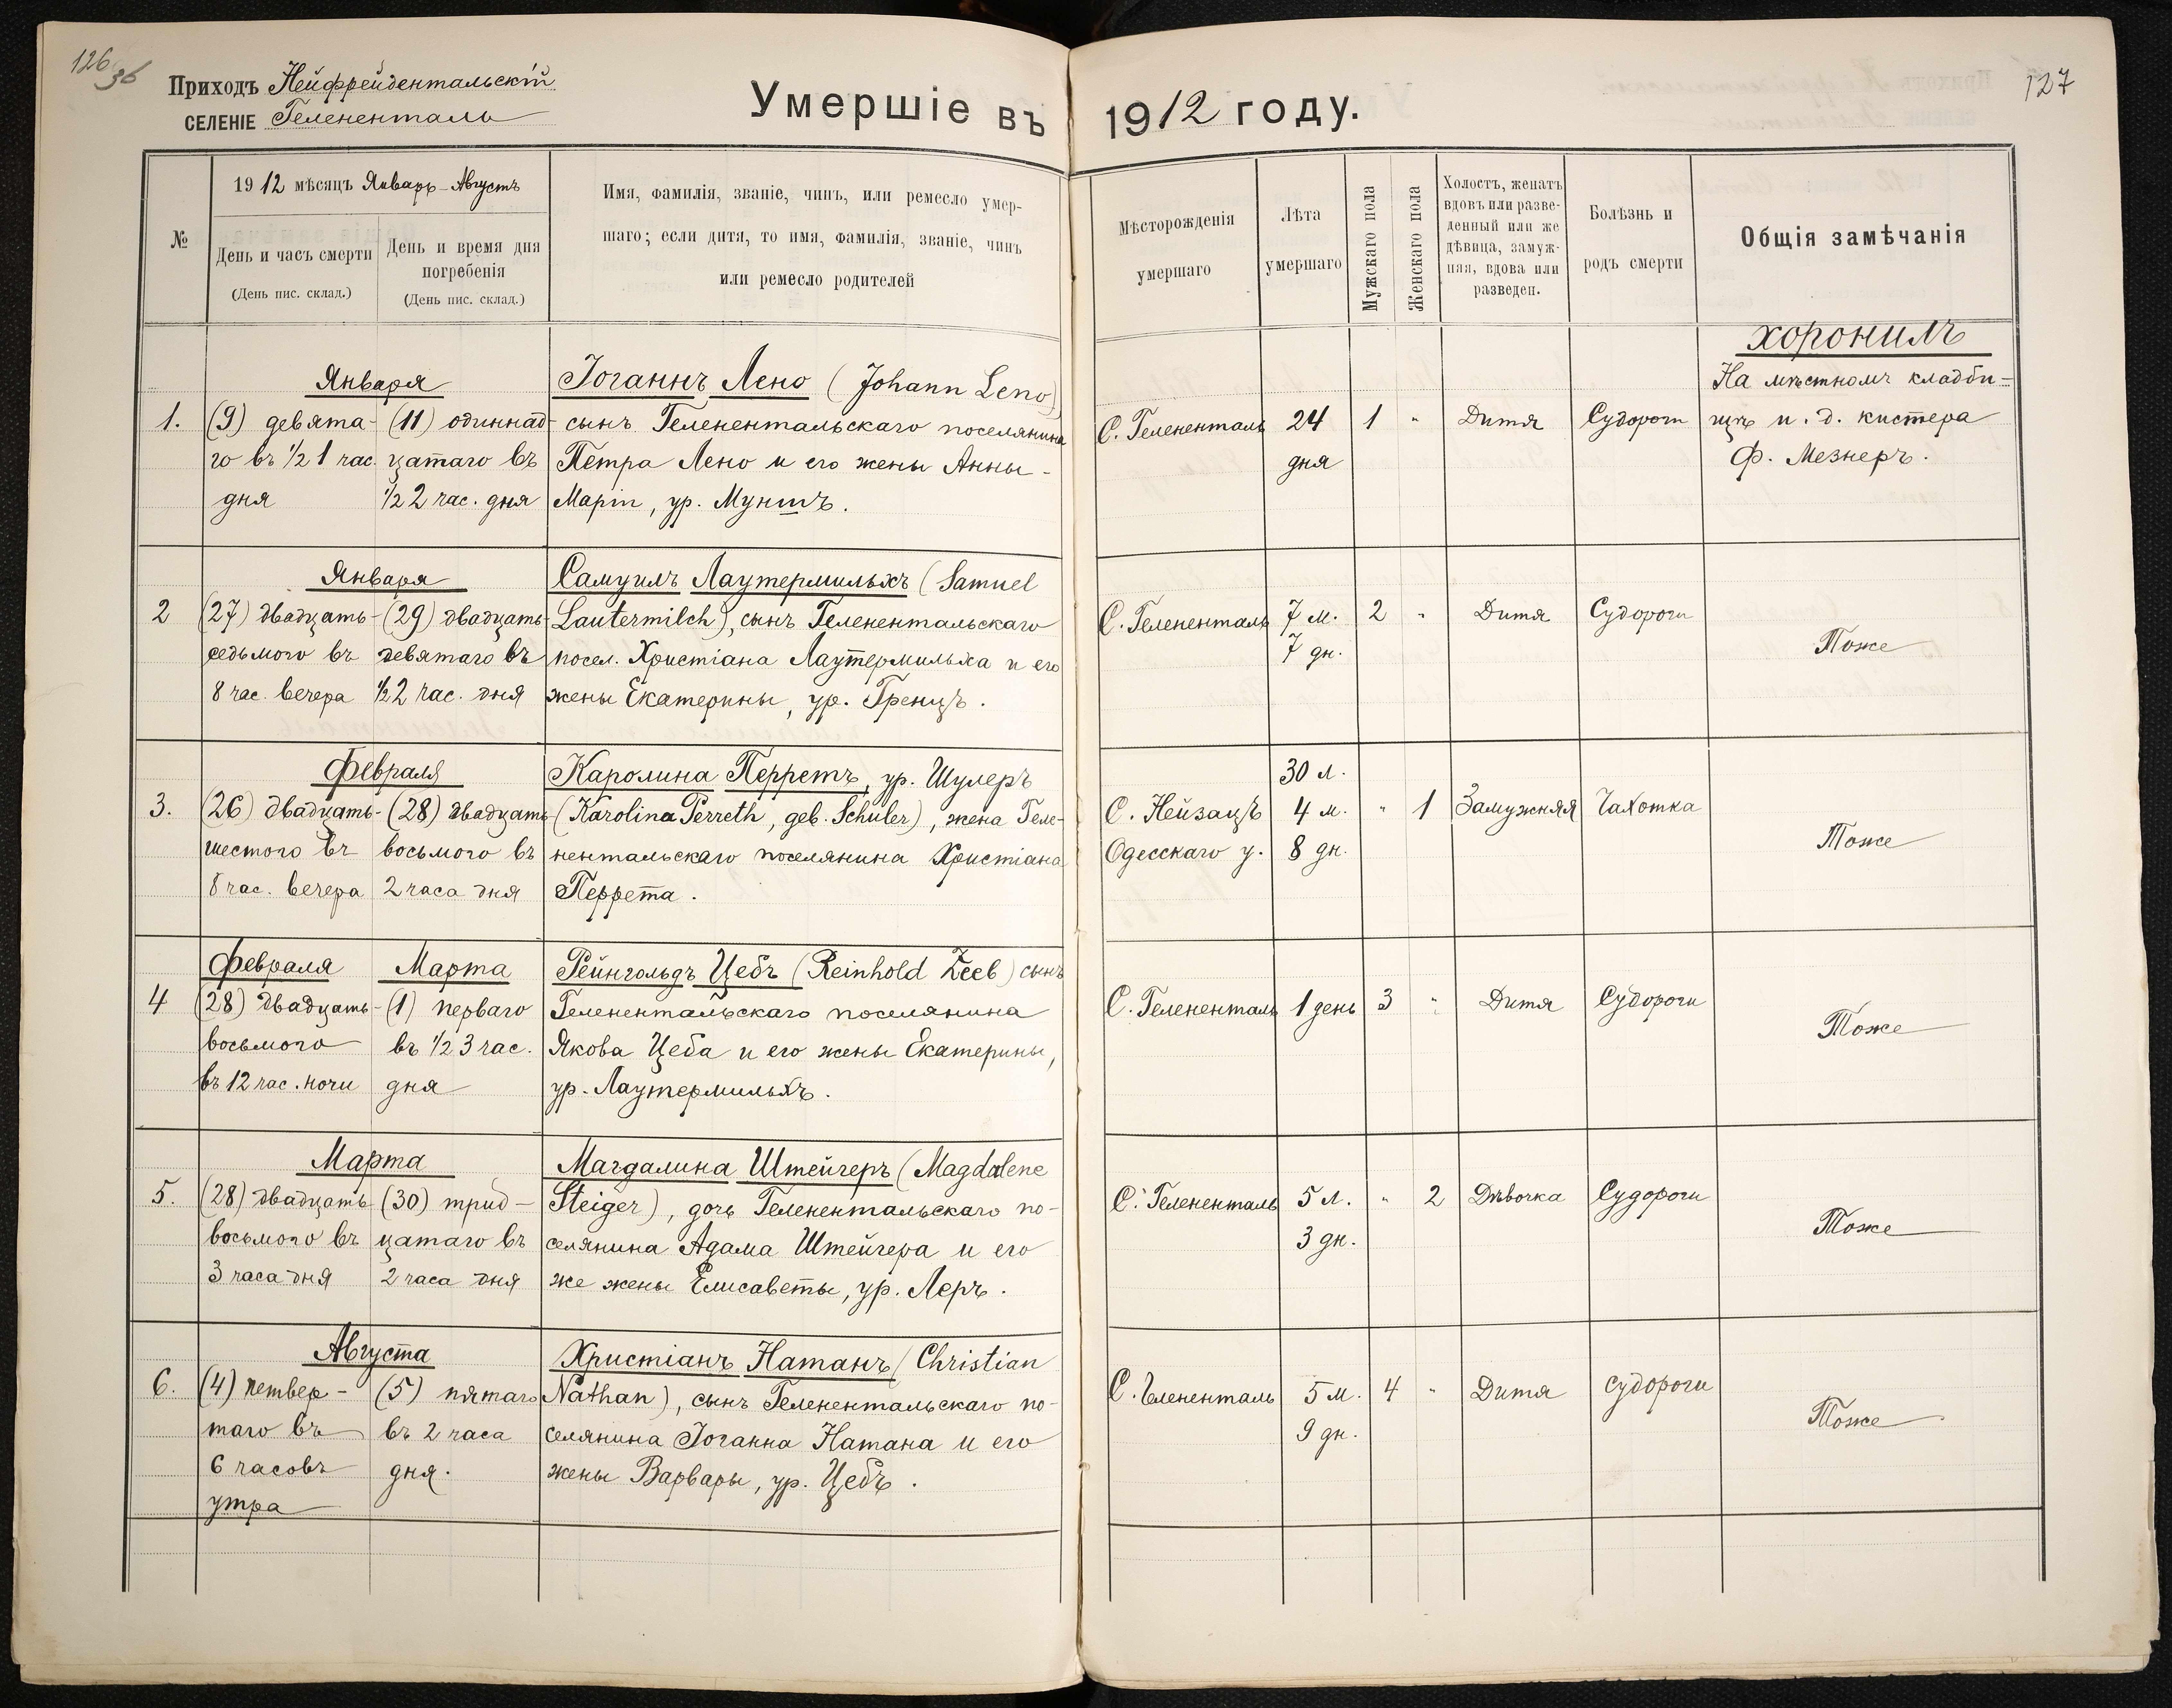 126
36
127
Приходъ Нейфрейдентальскій
СЕЛЕНІЕ Гелененталь
Умершіе въ 1912 году.
№
1912 мѣсяцъ Январь-Августъ
День и часъ смерти
(День пис. склад.)
День и время дня
погребенія
(День пис. склад.)
Имя, фамилія, званіе, чинъ, или ремесло умер-
шаго; если дитя, то имя, фамилія, званіе, чинъ
или ремесло родителей
Мѣсторожденія
умершаго
Лѣта
умершаго
Мужскаго пола
Женскаго пола
Холостъ, женатъ
вдовъ или разве-
денный или же
дѣвица, замуж-
няя, вдова или
разведен.
Болѣзнь и
родъ смерти
Общія замѣчанія
хоронилъ
1.
Января
(9) девята-
го въ 1/2 1 час.
дня
(11) одиннад-
цатаго въ
1/2 2 час. дня
Іоганнъ Лено (Johann Leno)
сынъ Гелененталь­скаго поселянина
Петра Лено и его жены Анны-
Маріи, ур. Муншъ.
С. Гелененталь
24
дня
1
"
Дитя
Судороги
На мѣстномъ кладби-
щѣ и. д. кистера
Ф. Мезнеръ.
2
Января
(27) двадцать-
седьмого въ
8 час. вечера
(29) двадцать-
девятаго въ
1/2 2 час. дня
Самуилъ Лаутермильхъ (Samuel
Lautermilch), сынъ Гелененталь­скаго
посел. Христіана Лаутермильха и его
жены Екатерины, ур. Гренцъ.
С. Гелененталь
7 м.
7 дн.
2
"
Дитя
Судороги
Тоже
3.
Февраля
(26) двадцать-
шестого въ
8 час. вечера
(28) двадцать
восьмого въ
2 часа дня
Каролина Перретъ, ур. Шулеръ
(Karolina Perreth, geb. Schuler), жена Геле-
нентальскаго поселянина Христіана
Перрета.
С. Нейзацъ
Одесскаго у.
30 л.
4 м.
8 дн.
"
1
Замужняя
Чахотка
Тоже
4
Февраля
(28) двадцать-
восьмого
въ 12 час. ночи
Марта
(1) перваго
въ 1/2 3 час.
дня
Рейнгольдъ Цебъ (Reinhold Zeeb) сынъ
Гелененталь­скаго поселянина
Якова Цеба и его жены Екатерины,
ур. Лаутермильхъ.
С. Гелененталь
1 день
3
"
Дитя
Судороги
Тоже
5.
Марта
(28) двадцать
восьмого въ
3 часа дня
(30) трид-
цатаго въ
2 часа дня
Магдалина Штейгеръ (Magdalene
Steiger), дочь Гелененталь­скаго по-
селянина Адама Штейгера и его
же жены Елисаветы, ур. Леръ.
С. Гелененталь
5 л.
3 дн.
"
2
Дѣвочка
Судороги
Тоже
6.
Августа
(4) четвер-
таго въ
6 часовъ
утра
(5) пятаго
въ 2 часа
дня.
Христіанъ Натанъ (Christian
Nathan), сынъ Гелененталь­скаго по-
селянина Іоганна Натана и его
жены Варвары, ур. Цебъ.
С. Гелененталь
5 м.
9 дн.
4
"
Дитя
судороги
Тоже